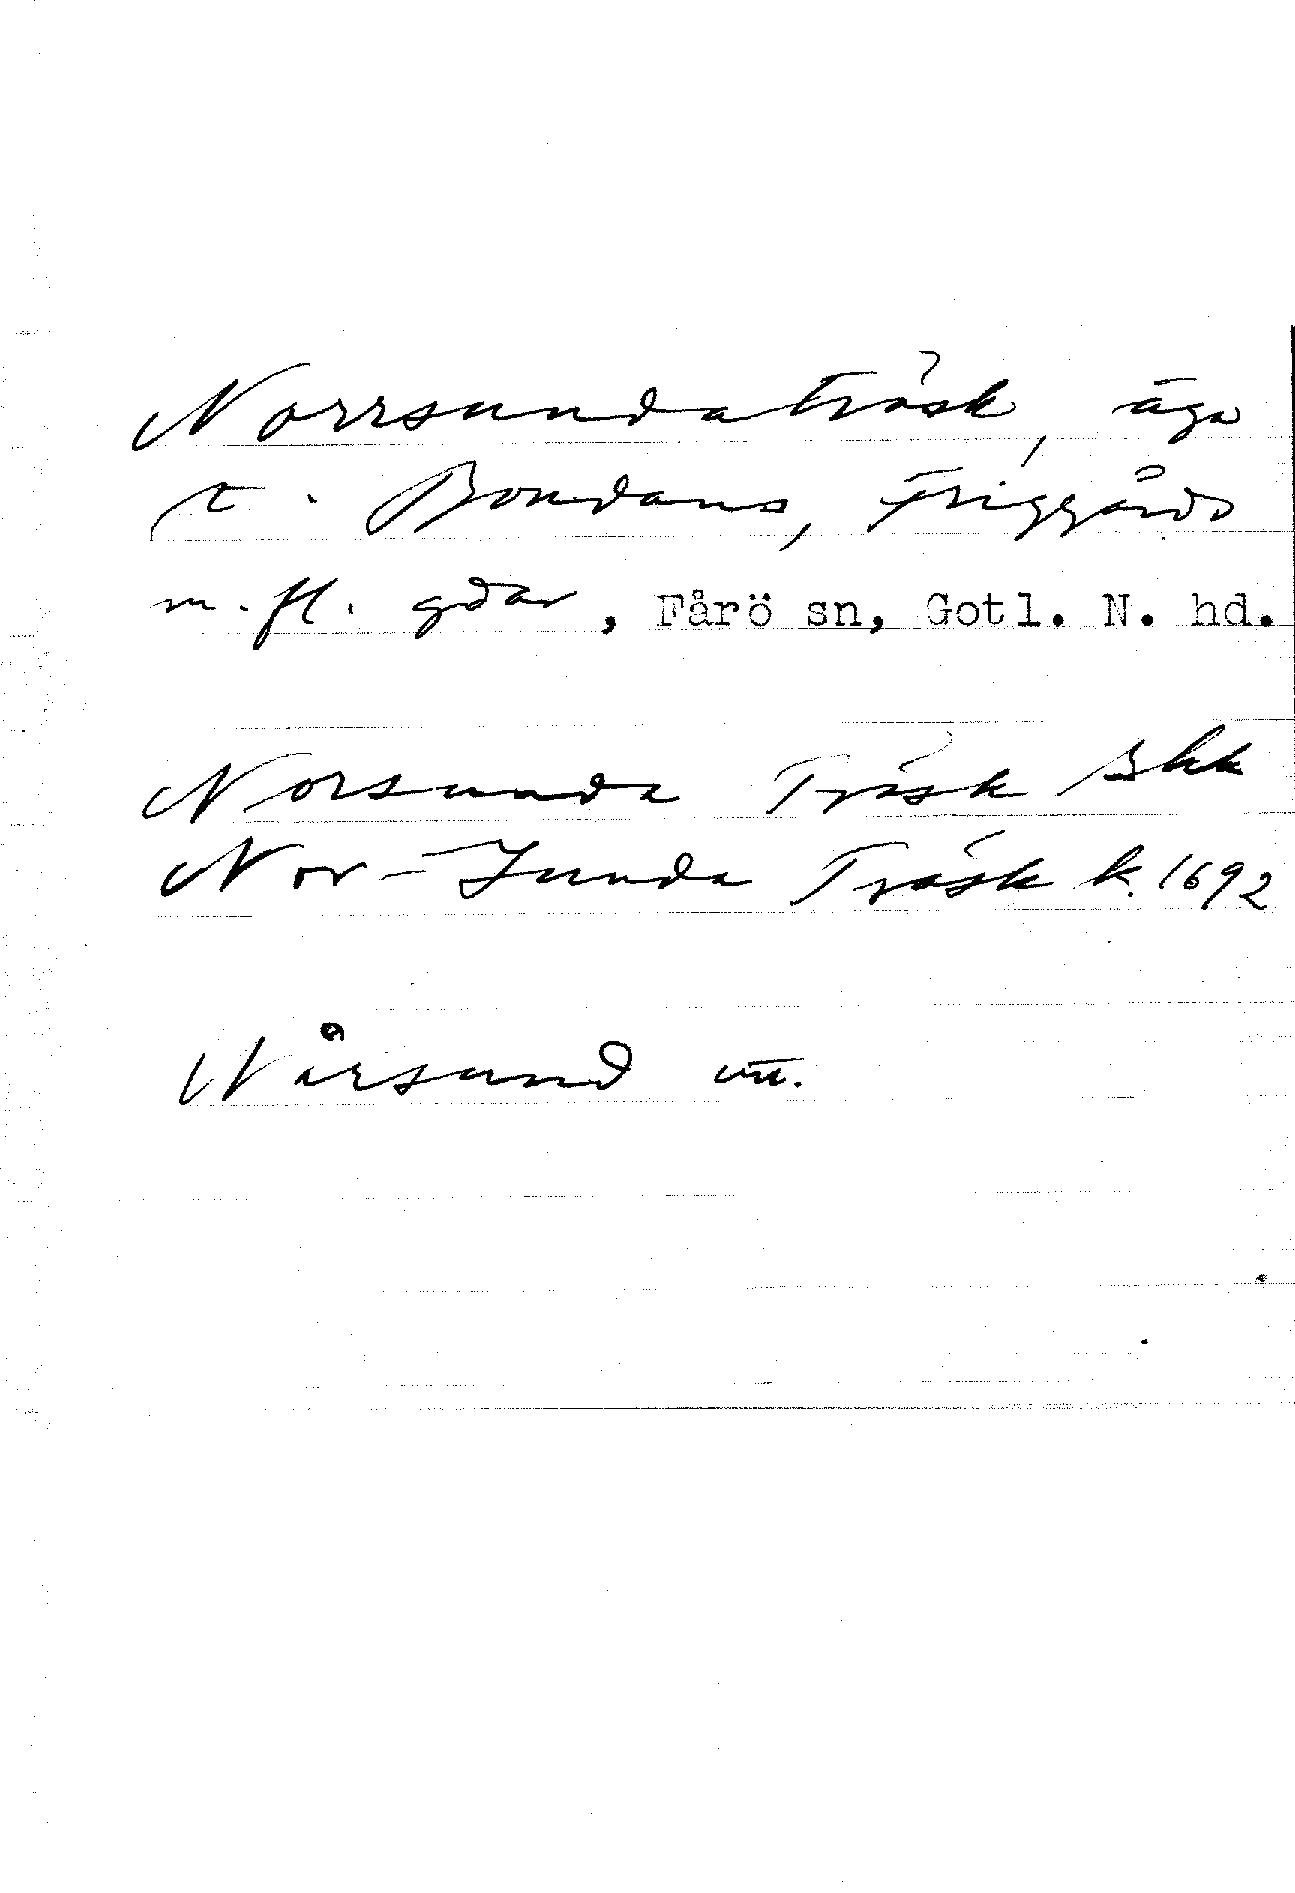 Norrsundaträsk, äga
t. Bondans, Friggårds
m.fl. gdar, Fårö sn, Gotl. N. hd.
Norsunda Träsk skk
Nor-Sunda Träsk k. 1692
Nårsund